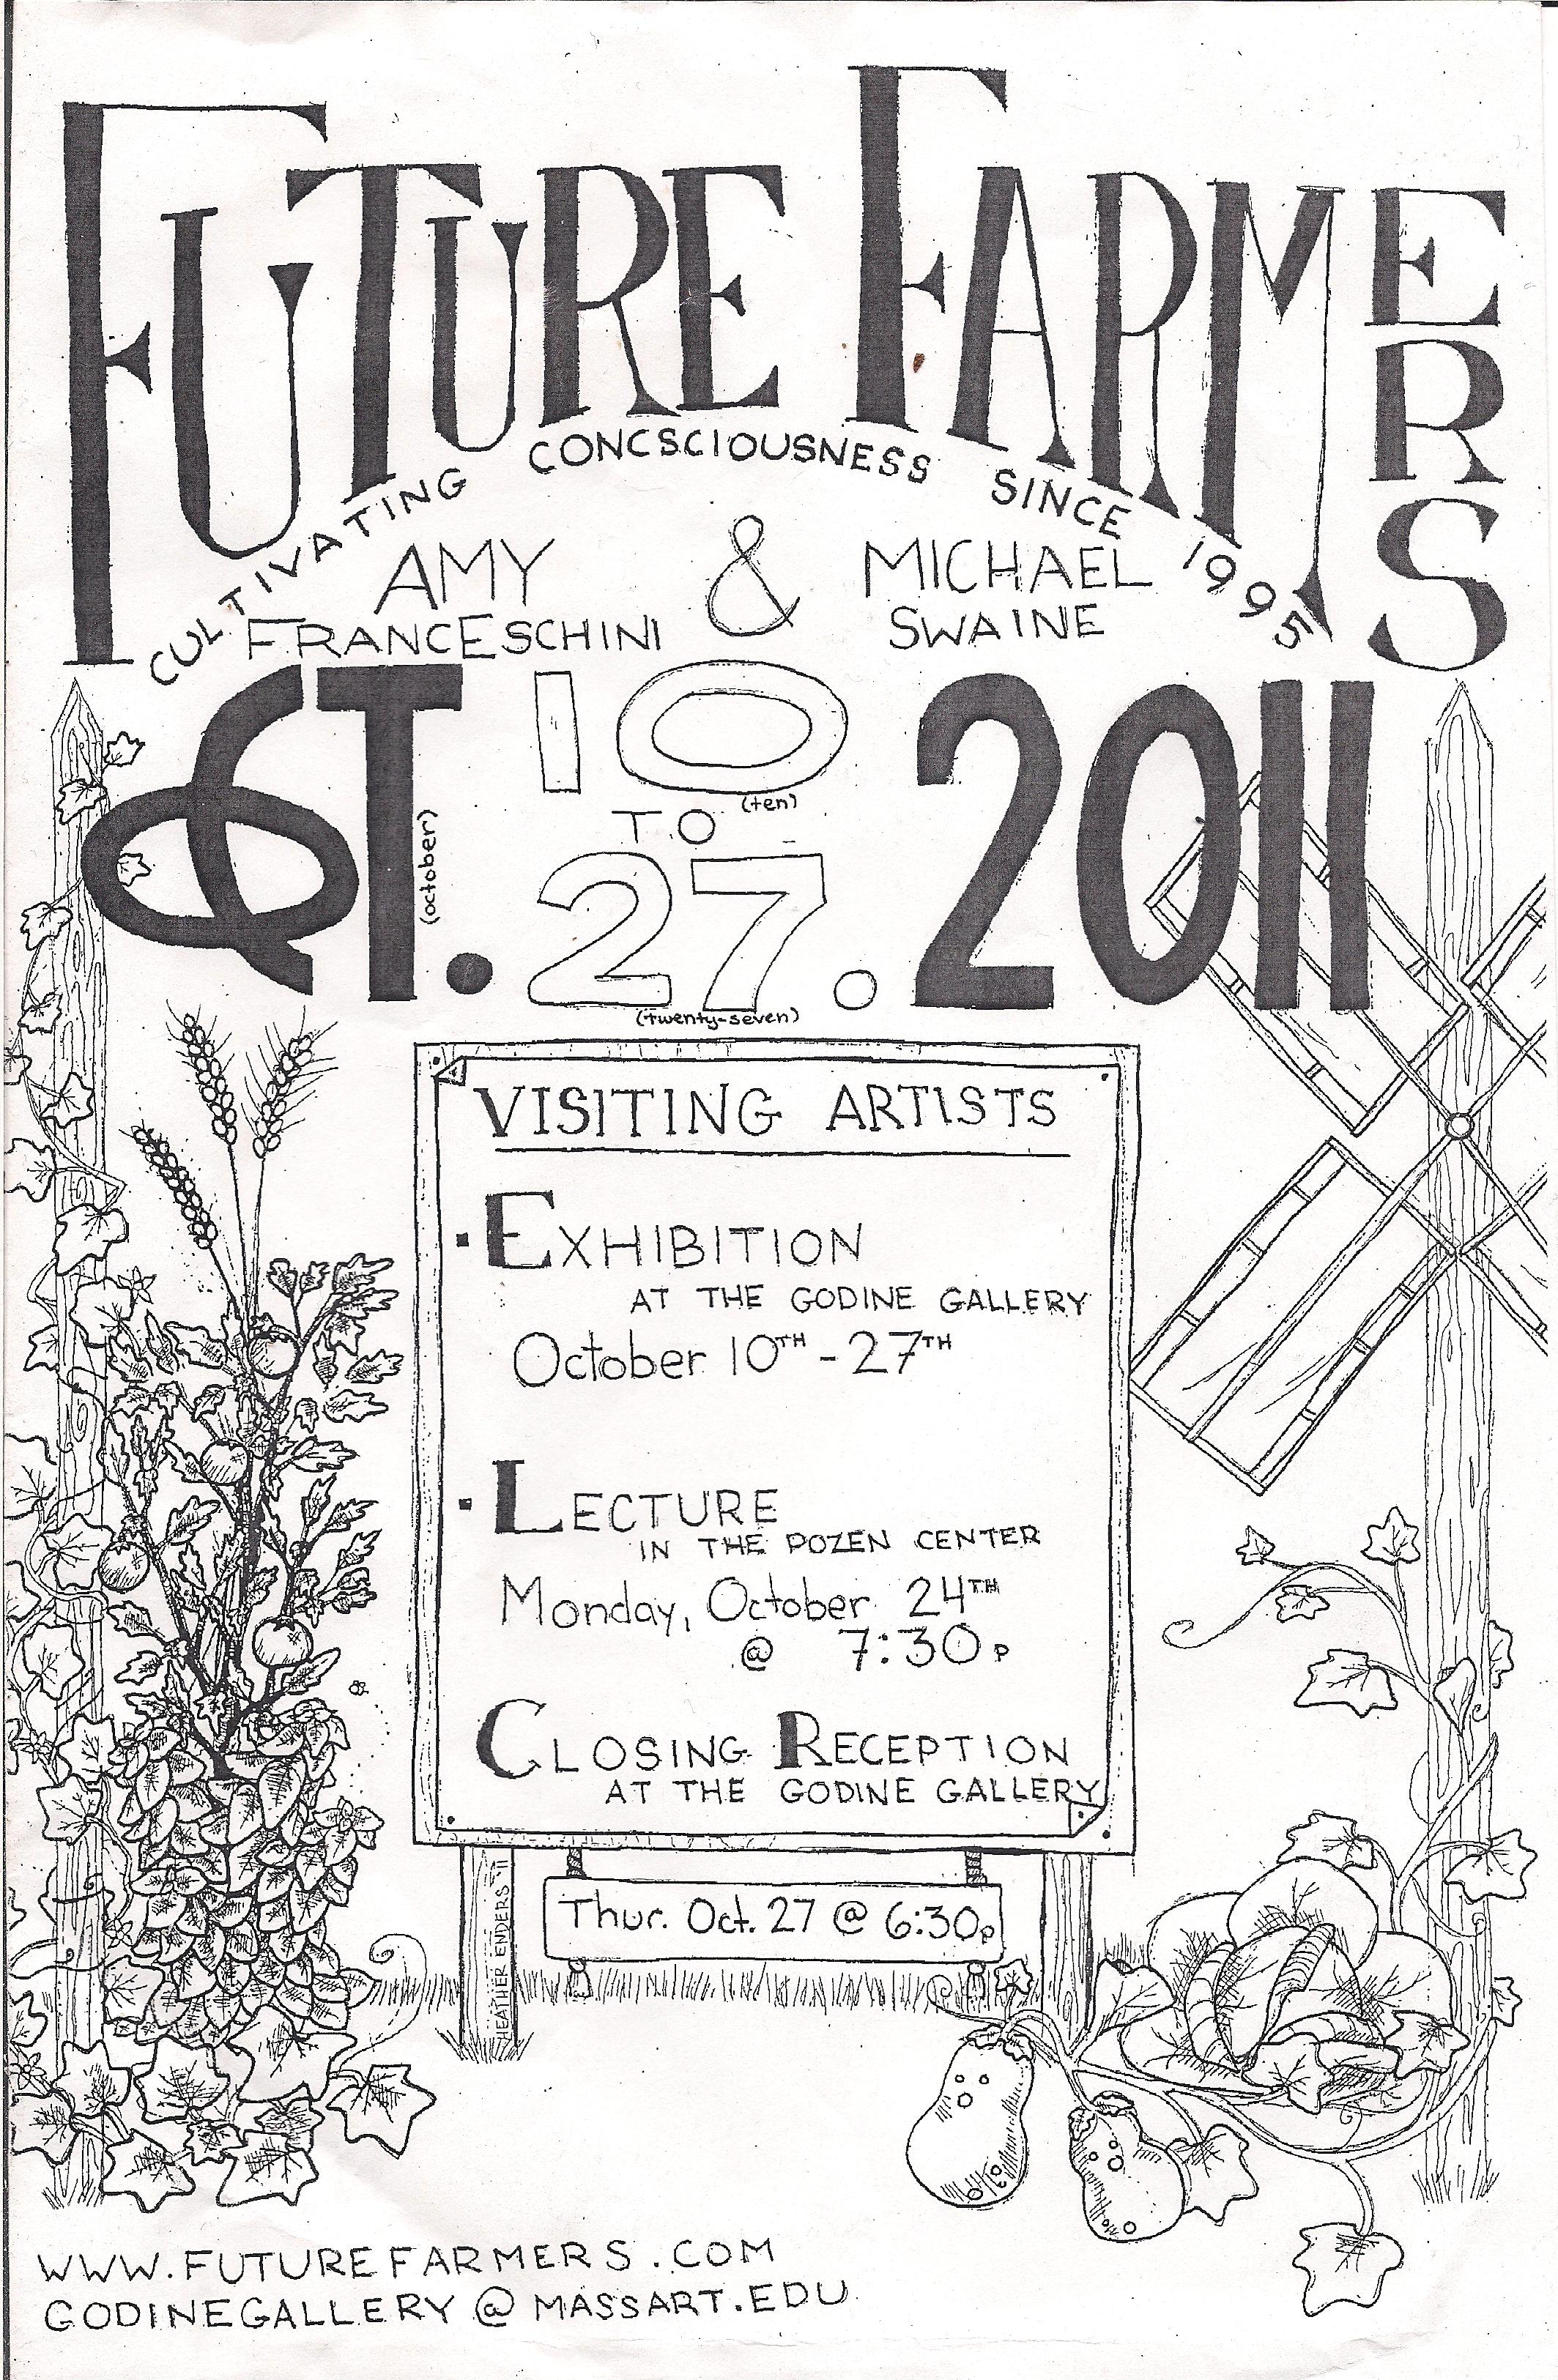 FUTURE FARMERS
CULTIVATING CONCSCIOUSNESS SINCE 1995
AMY FRANCESCHINI & MICHAEL SWAINE
OCT. 10 TO 27. 2011
(october)
(ten)
(twenty-seven)
VISITING ARTISTS
· EXHIBITION
AT THE GODINE GALLERY
October 10TH - 27TH
· LECTURE
IN THE POZEN CENTER
Monday, October 24TH
@ 7:30P
CLOSING RECEPTION
AT THE GODINE GALLERY
Thur. Oct. 27 @ 6:30p
HEATHER ENDERS '11
WWW.FUTUREFARMERS.COM
GODINEGALLERY@MASSART.EDU